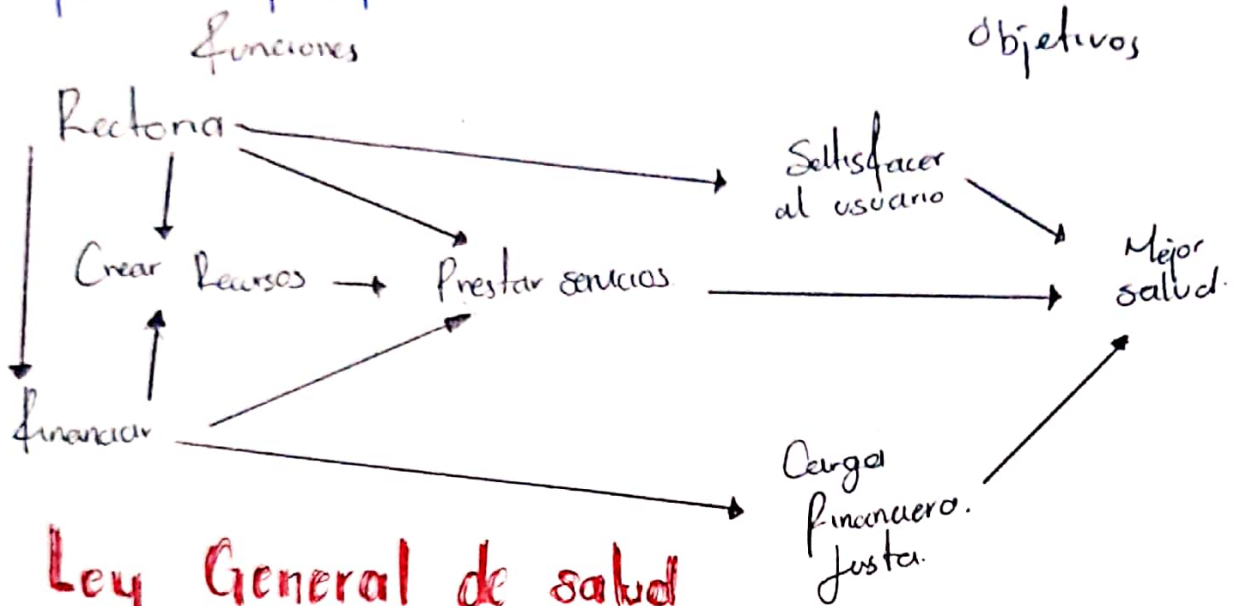 funciones
Objetivos
Rectoria
Satisfacer
al usuario
Crear Recursos
Prestar servicios
Mejor
salud.
financiar
Carga
financiero.
Justa.
Ley General de salud